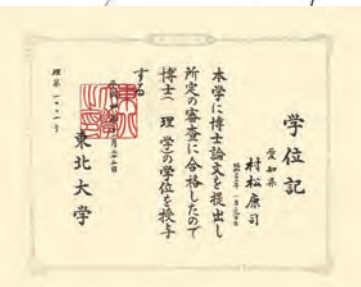 学位記
愛知県
村松康司
本学に博士論文を提出し
所定の審査に合格したので
博士(理学)の学位を授与
する
東北大学